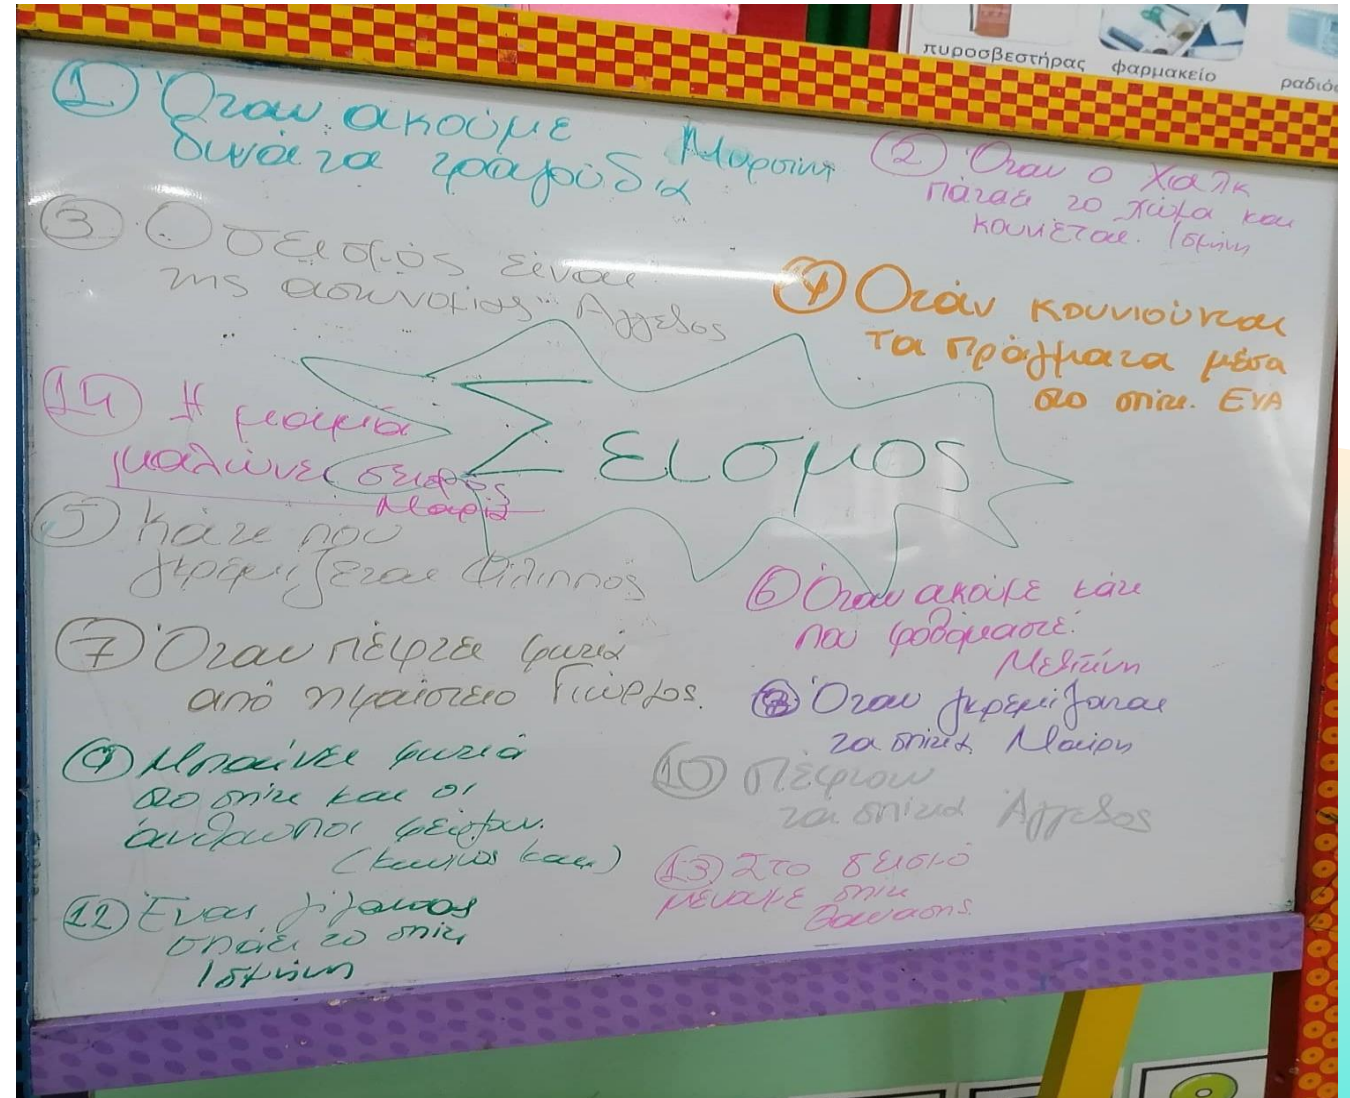 πυροσβεστήρας
φαρμακείο
ραδιό
1 Όταν ακούμε
δυνατα τραγούδια Μυρσίνη
2 Όταν ο Χαλκ
πάταει το χώμα και
κουνιέται. Ισμήνη
3 Ο σεισμός είναι
της αστυνομίας" Άγγελος
4 Οταν κουνιούνται
τα πράγματα μέσα
στο σπίτι. ΕΥΑ
14 Η μαμά
μαλώνει σειρός
Μαρία
Σεισμος
5 Κάτι που
γκρεμίζεται Φίλιππός
6 Όταν ακούμε κάτι
που φοβόμαστε.
Μελίνη
7 Όταν πέφτει φωτιά
από ηφαίστειο Γιώργος.
8 Όταν γκρεμίζονται
τα σπίτια Μαίρη
9 Μπαίνει φωτιά
στο σπίτι και οι
άνθρωποι φεύγουν.
10 Πέφτουν
τα σπίτια Άγγελος
12 Ένας γίγαντας
σπάει το σπίτι
Ισμήνη
13 Στο σεισμό
μέναμε σπίτι
Θανάσης.